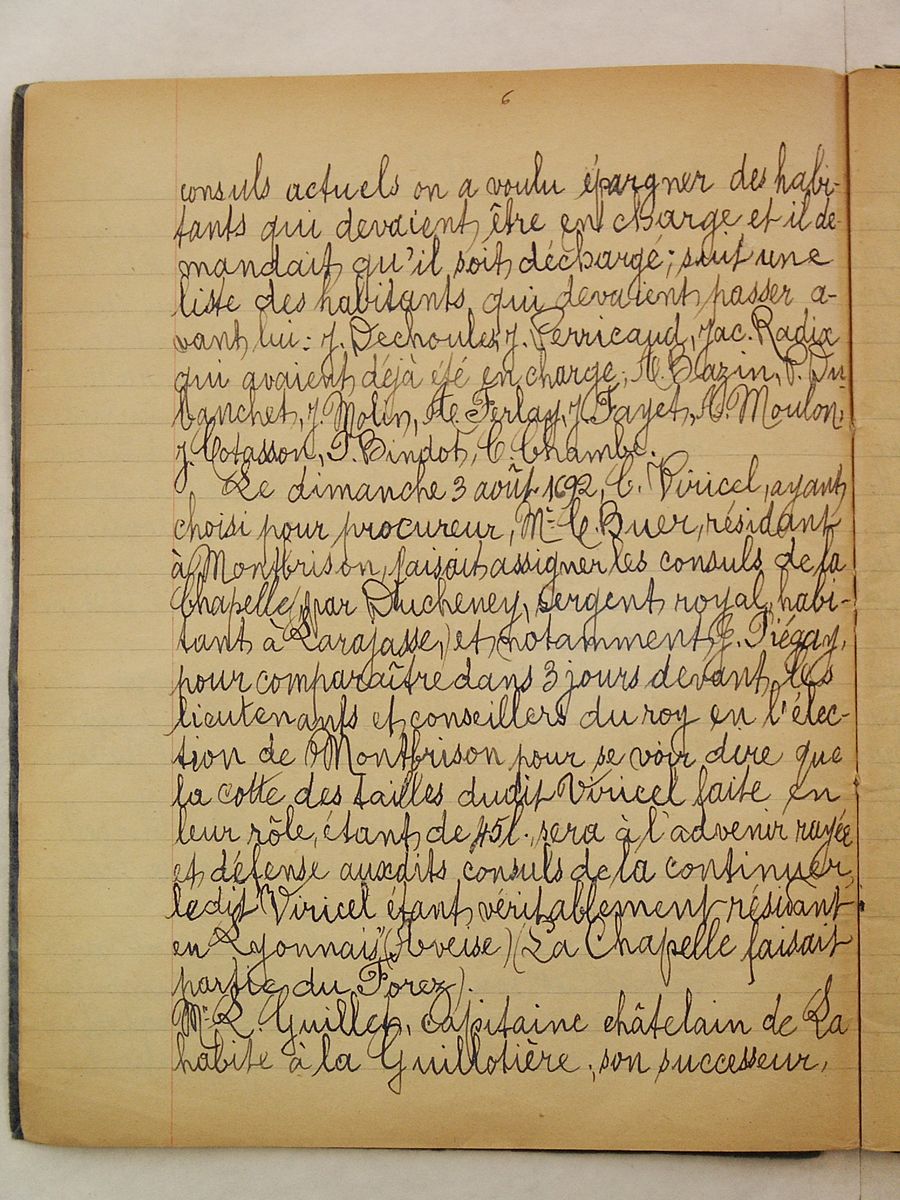 6
consuls actuels on a voulu épargner des habi-
tants qui devaient être en charge et il de-
mandait qu'il soit déchargé; suit une
liste des habitants qui devaient passer a-
vant lui: J. Dechoulez, J. Perricaud, Jac. Radix
qui avaient déjà été en charge; A. Bazin, P. Du-
banchet, J. Molin, Ae. Ferlay, J. Fayet, A. Moulon,
J. Cotasson, P. Bindot, C. Chambe.
Le dimanche 3 août 1692, C. Viricel, ayant
choisi pour procureur, Me C. Buer, résidant
à Montbrison, faisait assigner les consuls de la
Chapelle (par Ducheney, sergent royal, habi-
tant à Larajasse,) et notamment J. Piégay,
pour comparaître dans 3 jours devant les
lieutenants et conseillers du roy en l'élec-
tion de Montbrison pour se voir dire que
la cotte des tailles dudit Viricel faite en
leur rôle, étant de 45 l., sera à l'advenir rayée
et défense auxdits consuls de la continuer,
ledit Viricel étant véritablement résidant
en Lyonnais (Aveise) (La Chapelle faisait
partie du Forez).
Me L. Guillet, capitaine châtelain de La
habite à la Guillotière; son successeur,